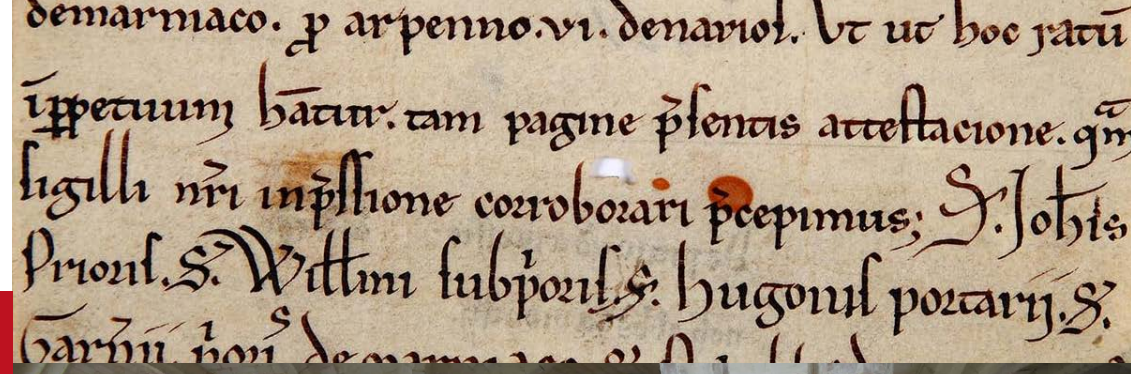 demarmaco. ꝑ arpenno.vi. denarioſ. Vt ut hoc ratū
īꝑpetuum hātur. tam pagine p̄ſentis atteſtacione. qᵃm
ſigilli nr̄i inp̄ſſione corroborari p̄cepimus; S̄. Joh̄is
Prioriſ. S̄. Willmi ſubp̄oriſ. S̄. hugoniſ portarij. S̄.